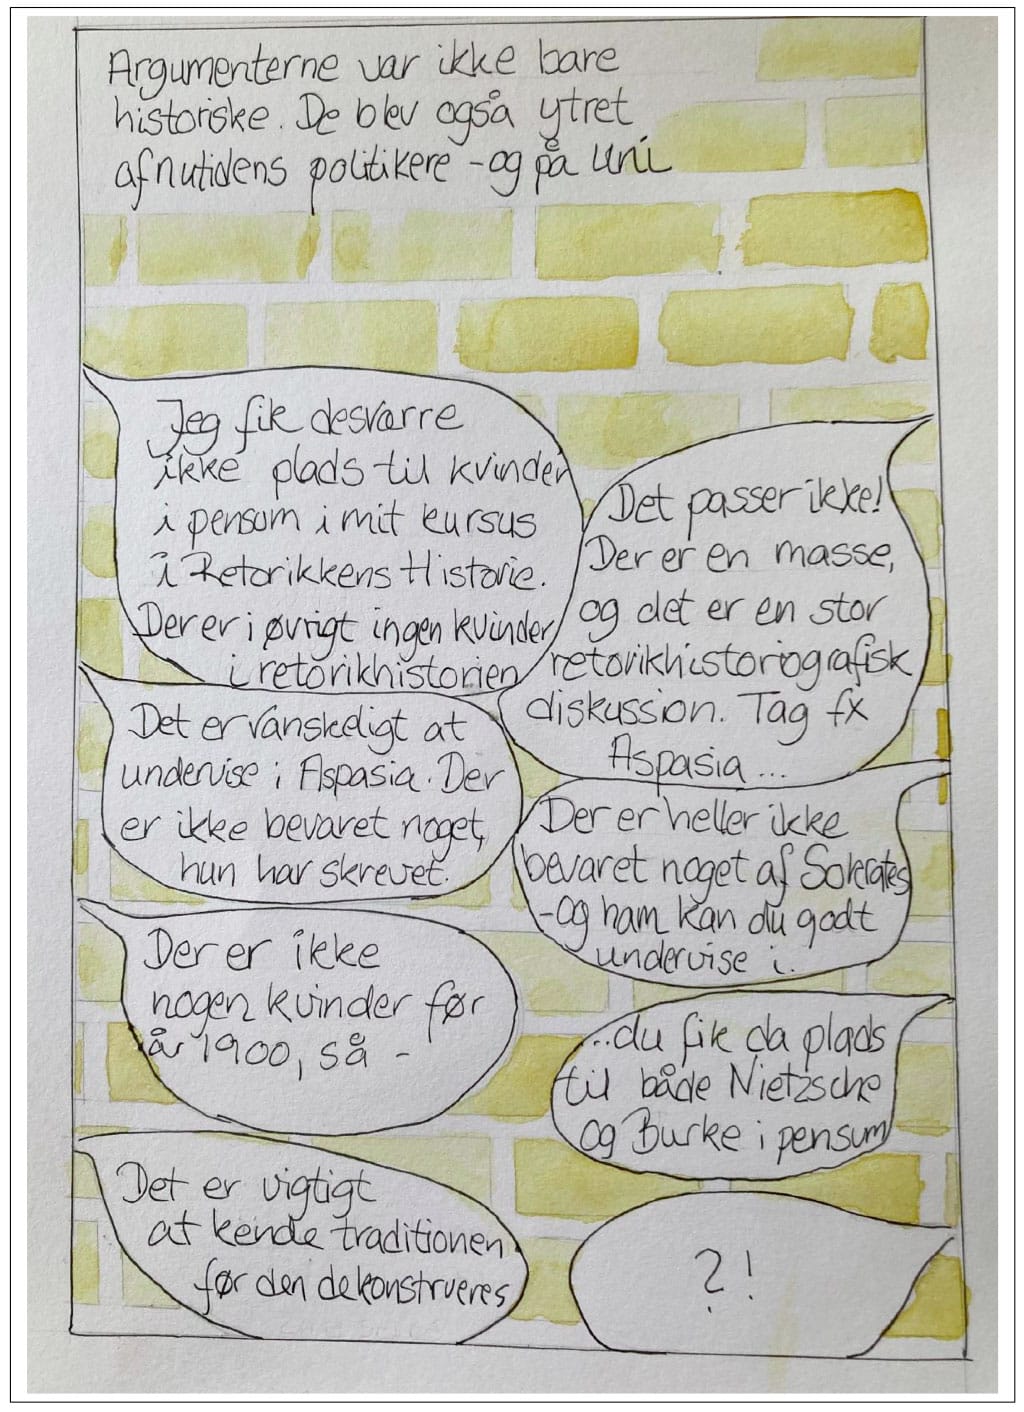 Argumenterne var ikke bare
historiske. De blev også ytret
af nutidens politikere - og på uni
Jeg fik desværre
ikke plads til kvinder
i pensum i mit kursus
i Retorikkens Historie.
Der er i øvrigt ingen kvinder
i retorikhistorien
Det passer ikke!
Der er en masse,
og det er en stor
retorikhistoriografisk
diskussion. Tag fx
Aspasia ...
Det er vanskeligt at
undervise i Aspasia. Der
er ikke bevaret noget,
hun har skrevet.
Der er heller ikke
bevaret noget af Sokrates
- og ham kan du godt
undervise i.
Der er ikke
nogen kvinder før
år 1900, så -
...du fik da plads
til både Nietzsche
og Burke i pensum
Det er vigtigt
at kende traditionen
før den dekonstrueres
?!